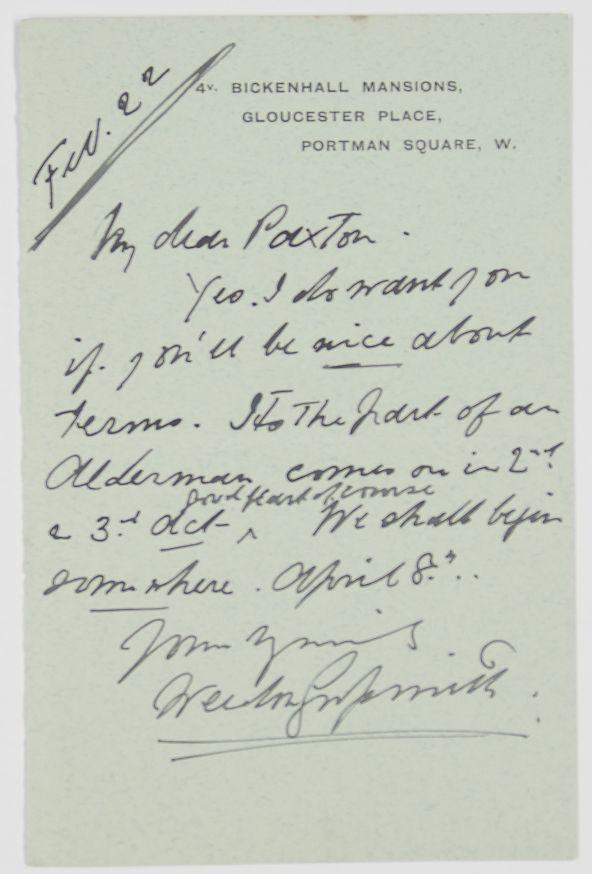 Feb. 22
4v. BICKENHALL MANSIONS,
GLOUCESTER PLACE,
PORTMAN SQUARE, W.
My dear Paxton.
Yes. I do want you
if you'll be nice about
terms. Its the part of an
Alderman comes on in 2nd
& 3rd Act ^ good part of course We shall begin
somewhere. April 8th..
Yours
Weedon Grossmith.